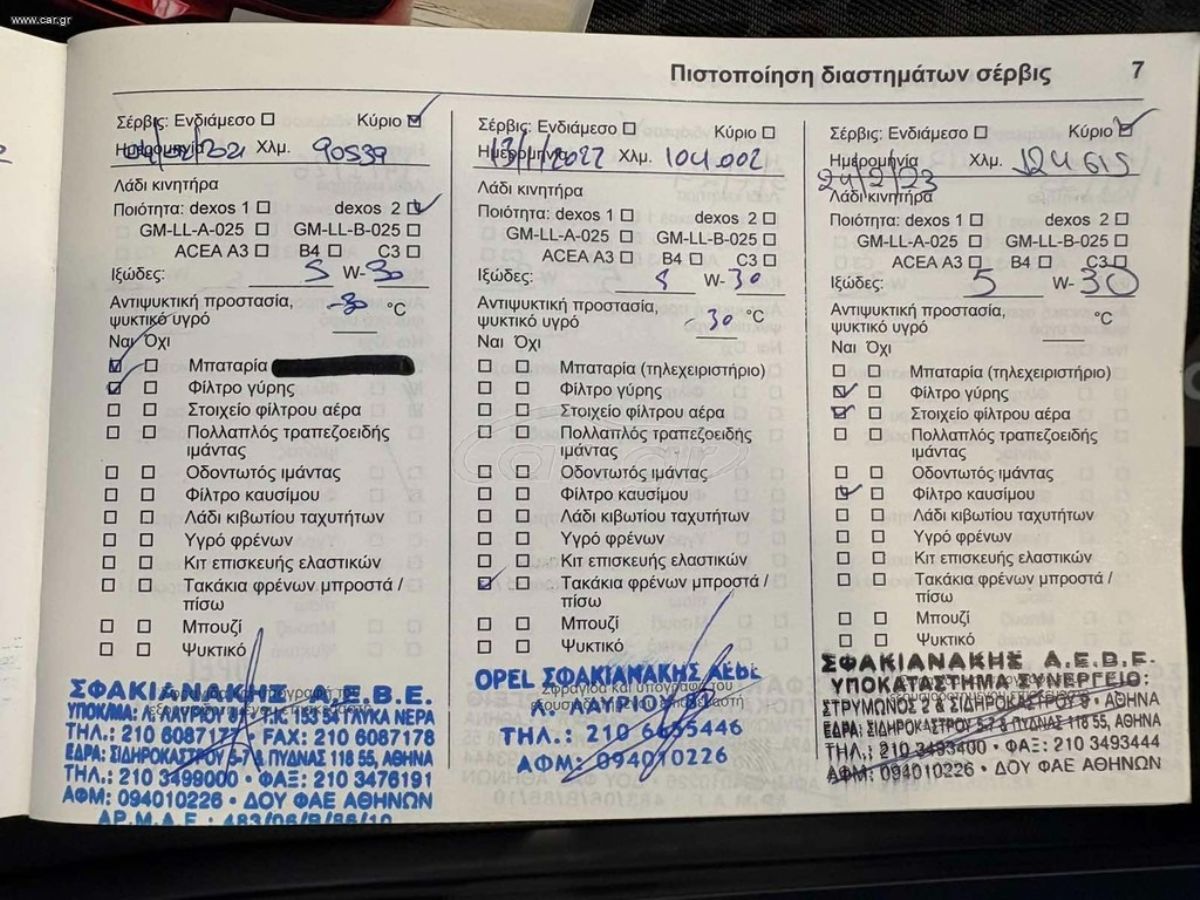 www.car.gr
Πιστοποίηση διαστημάτων σέρβις 7
Σέρβις: Ενδιάμεσο Κύριο
Ημερομηνία Χλμ. 90539
Λάδι κινητήρα
Ποιότητα: dexos 1 dexos 2
GM-LL-A-025 GM-LL-B-025
ACEA A3 B4 C3
Ιξώδες: 5 W-30
Αντιψυκτική προστασία, -30 °C
ψυκτικό υγρό
Ναι Όχι
Μπαταρία
Φίλτρο γύρης
Στοιχείο φίλτρου αέρα
Πολλαπλός τραπεζοειδής
ιμάντας
Οδοντωτός ιμάντας
Φίλτρο καυσίμου
Λάδι κιβωτίου ταχυτήτων
Υγρό φρένων
Κιτ επισκευής ελαστικών
Τακάκια φρένων μπροστά /
πίσω
Μπουζί
Ψυκτικό
ΣΦΑΚΙΑΝΑΚΗΣ Α.Ε.Β.Ε.
ΥΠΟΚ/ΜΑ: Λ. ΛΑΥΡΙΟΥ Τ.Κ 153 54 ΓΛΥΚΑ ΝΕΡΑ
ΤΗΛ.: 210 6087177 FAX: 210 6087178
ΕΔΡΑ: ΣΙΔΗΡΟΚΑΣΤΡΟΥ 5-7 & ΠΥΔΝΑΣ 118 55, ΑΘΗΝΑ
ΤΗΛ.: 210 3499000 • ΦΑΞ: 210 3476191
ΑΦΜ: 094010226 • ΔΟΥ ΦΑΕ ΑΘΗΝΩΝ
ΑΡ.Μ.Α.Ε.: 483/06/Β/86/10
Σέρβις: Ενδιάμεσο Κύριο
Ημερομηνία 13/1/2022 Χλμ. 104.002
Λάδι κινητήρα
Ποιότητα: dexos 1 dexos 2
GM-LL-A-025 GM-LL-B-025
ACEA A3 B4 C3
Ιξώδες: 5 W-30
Αντιψυκτική προστασία, -30 °C
ψυκτικό υγρό
Ναι Όχι
Μπαταρία (τηλεχειριστήριο)
Φίλτρο γύρης
Στοιχείο φίλτρου αέρα
Πολλαπλός τραπεζοειδής
ιμάντας
Οδοντωτός ιμάντας
Φίλτρο καυσίμου
Λάδι κιβωτίου ταχυτήτων
Υγρό φρένων
Κιτ επισκευής ελαστικών
Τακάκια φρένων μπροστά /
πίσω
Μπουζί
Ψυκτικό
OPEL ΣΦΑΚΙΑΝΑΚΗΣ ΑΕΒΕ
Σφραγίδα και υπογραφή του
Λ. ΛΑΥΡΙΟΥ
ΤΗΛ.: 210 6655446
ΑΦΜ: 094010226
Σέρβις: Ενδιάμεσο Κύριο
Ημερομηνία Χλμ. 124 615
24/2/23
Λάδι κινητήρα
Ποιότητα: dexos 1 dexos 2
GM-LL-A-025 GM-LL-B-025
ACEA A3 B4 C3
Ιξώδες: 5 W-30
Αντιψυκτική προστασία, °C
ψυκτικό υγρό
Ναι Όχι
Μπαταρία (τηλεχειριστήριο)
Φίλτρο γύρης
Στοιχείο φίλτρου αέρα
Πολλαπλός τραπεζοειδής
ιμάντας
Οδοντωτός ιμάντας
Φίλτρο καυσίμου
Λάδι κιβωτίου ταχυτήτων
Υγρό φρένων
Κιτ επισκευής ελαστικών
Τακάκια φρένων μπροστά /
πίσω
Μπουζί
Ψυκτικό
ΣΦΑΚΙΑΝΑΚΗΣ Α.Ε.Β.Ε.
ΥΠΟΚΑΤΑΣΤΗΜΑ ΣΥΝΕΡΓΕΙΟ:
ΣΤΡΥΜΩΝΟΣ 2 & ΣΙΔΗΡΟΚΑΣΤΡΟΥ 9 • ΑΘΗΝΑ
ΕΔΡΑ: ΣΙΔΗΡΟΚΑΣΤΡΟΥ 5-7 & ΠΥΔΝΑΣ 118 55, ΑΘΗΝΑ
ΤΗΛ.: 210 3493400 • ΦΑΞ: 210 3493444
ΑΦΜ: 094010226 • ΔΟΥ ΦΑΕ ΑΘΗΝΩΝ